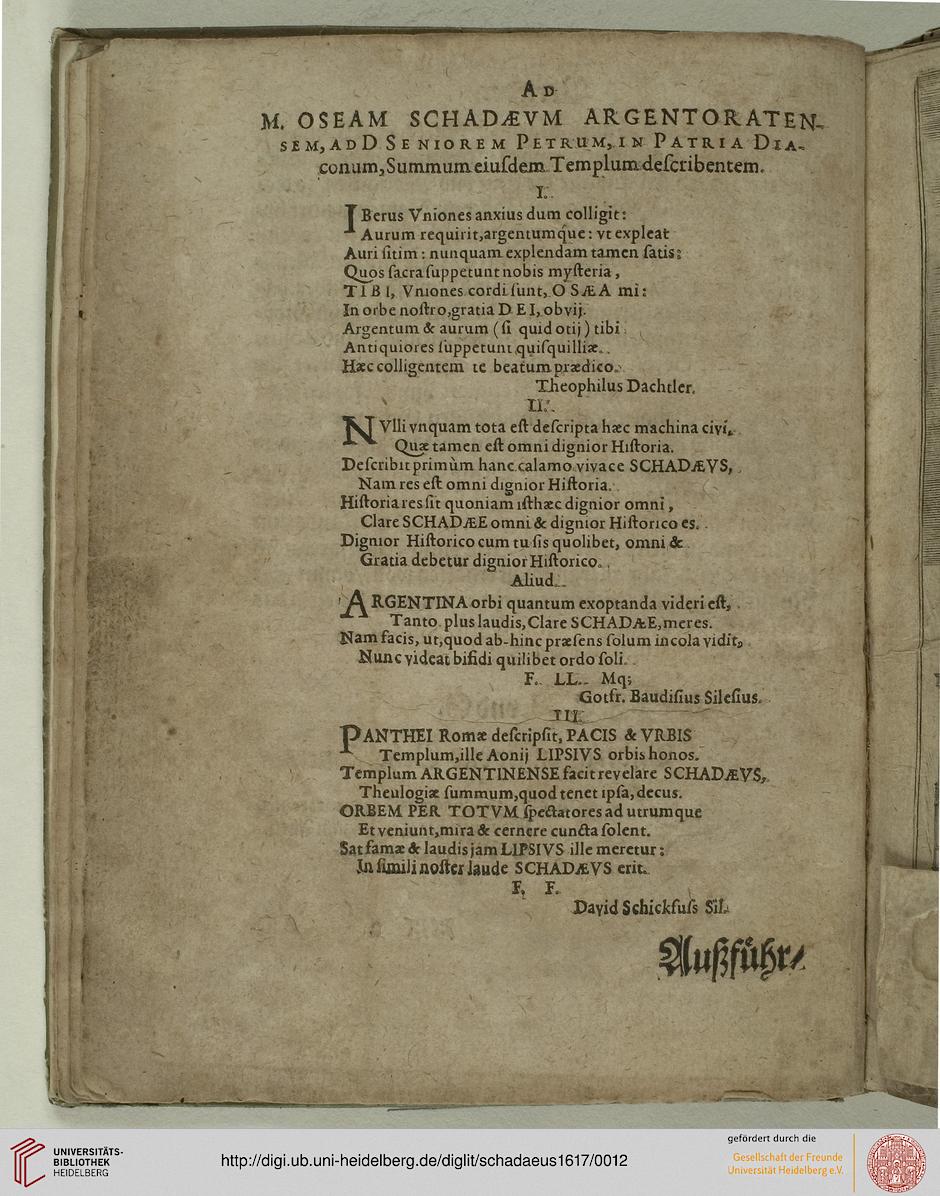 AD
M. OSEAM SCHADÆVM ARGENTORATEN-
SEM, AD D SENIOREM PETRUM, IN PATRIA DIA-
conum, Summum eiuſdem Templum deſcribentem.
I.
IBerus Vniones anxius dum colligit:
Aurum requirit, argentumque: vt expleat
Auri ſitim: nunquam explendam tamen ſatis:
Quos ſacra ſuppetunt nobis myſteria,
TIBI, Vniones cordi ſunt, OSÆA mi:
In orbe noſtro, gratia DEI, obvij.
Argentum & aurum (ſi quid otij) tibi
Antiquiores ſuppetunt quiſquiliæ.
Hæc colligentem te beatum prædico.
Theophilus Dachtler.
II.
NVlli vnquam tota eſt deſcripta hæc machina civi,
Quæ tamen eſt omni dignior Hiſtoria.
Deſcribit primùm hanc calamo vivace SCHADÆVS,
Nam res eſt omni dignior Hiſtoria.
Hiſtoria res ſit quoniam iſthæc dignior omni,
Clare SCHADÆE omni & dignior Hiſtorico es.
Dignior Hiſtorico cum tu ſis quolibet, omni &
Gratia debetur dignior Hiſtorico.
Aliud.
ARGENTINA orbi quantum exoptanda videri eſt,
Tanto plus laudis, Clare SCHADÆE, meres.
Nam facis, ut, quod ab-hinc præſens ſolum incola vidit,
Nunc videat bifidi quilibet ordo ſoli.
F. LL. Mq;
Gotfr. Baudiſius Sileſius.
III.
PANTHEI Romæ deſcripſit, PACIS & VRBIS
Templum, ille Aonij LIPSIVS orbis honos.
Templum ARGENTINENSE facit revelare SCHADÆVS,
Theulogiæ ſummum, quod tenet ipſa, decus.
ORBEM PER TOTVM ſpectatores ad utrumque
Et veniunt, mira & cernere cuncta ſolent.
Sat famæ & laudis jam LIPSIVS ille meretur:
In ſimili noſter laude SCHADÆVS erit.
F. F.
David Schickfuſs Sil.
Außführ⸗
UNIVERSITÄTS-
BIBLIOTHEK
HEIDELBERG
http://digi.ub.uni-heidelberg.de/diglit/schadaeus1617/0012
gefördert durch die
Gesellschaft der Freunde
Universität Heidelberg e.V.